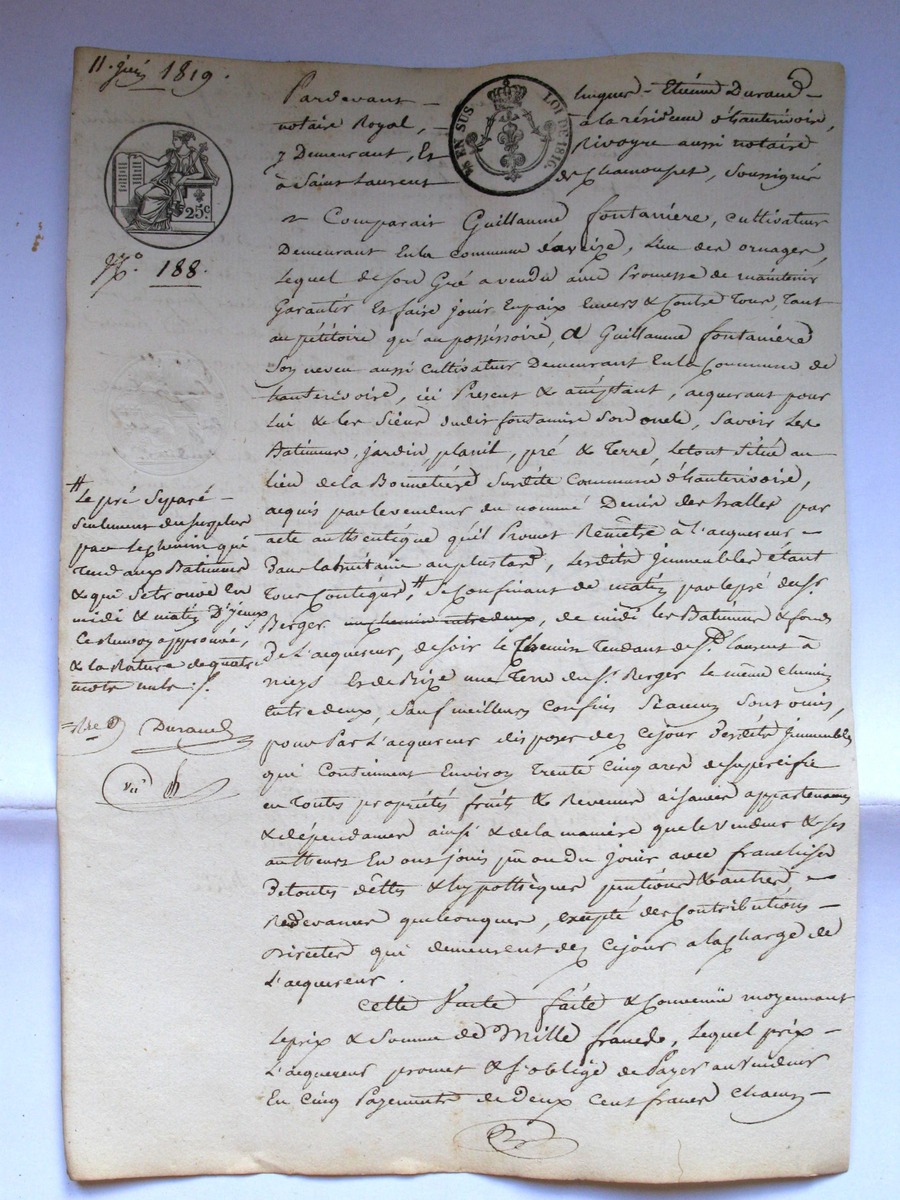 11. juin 1819.
25c
N.° 188.
EN SUS LOI DE 1816
Pardevant - Etiéne Durand -
notaire Royal, - à la résidence d'hauterivoire,
y Demeurant, Et Rivoyre aussi notaire
à Saint Laurent de Chamousset, Soussignés
Comparait Guillaume fontaniere, cultivateur
Demeurant En la commune d'aveize, Lieu des ornages,
Lequel de Son Gré a vendu avec Promesse de maintenir
Garantir Et faire jouir En paix Envers & Contre Tous, Tant
au pétitoire qu'au possessoire, a Guillaume fontaniere
Son neveu aussi Cultivateur Demeurant En la Commune de
hauterivoire, ici Présent & acceptant, acquerant pour
Lui & les Siens dudit fontaniere Son oncle, Savoir Les
Batimens, jardin, pré & Terre, Le tout Situé au
Lieu de la Bonnetiére Susdite Commune d'hauterivoire,
acquis par le vendeur du nommé Denis des halles par
acte authentique qu'il Promet Remêttre à L'acquereur -
Dans la huitaine au plus tard, Lesdits Immeubles étant
Tous Contigues,# Se Confinant de matin par le pré du Sr.
Berger un chemin entre deux, de midi les Batimens & fonds
De L'acquereur, de soir le Chemin Tendant de St. Laurent à
Et de Bize une Terre du Sr. Berger le même chemin
Entre deux, Sauf meilleurs Confins Si aucuns Sont omis,
pour Par L'acquereur disposer dez Cejour Desdits Immeubles
qui Contiennent Environ Trente Cinq ares de Superficie
en Toutes propriétés fruits & Revenus aisances appartenances
& dépendances ainsi & de la maniére que le vendeur & Ses
autheurs En ont jouis pu ou du jouir avec franchise
De toutes dêttes & hypothèques pentions & autres -
Redevances quelconques, excepté des Contributions -
Directes qui demeurent dez Cejour a la Charge de
L'acquereur.
Cette Vente faite & Convenüe moyennant
Le prix & Somme de Mille francs, Lequel prix -
L'acquereur promet & S'oblige de Payer au vendeur
En Cinq Payements de Deux Cent francs Chacun -
# Le pré Séparé -
Seulement du Surplus
par le Chemin qui
Tend aux Batimens
& qui Se trouve En
midi & matin D'yceux,
Ce Renvoy approuvé,
& la Rature de quatre
mots nuls :/.
Durand